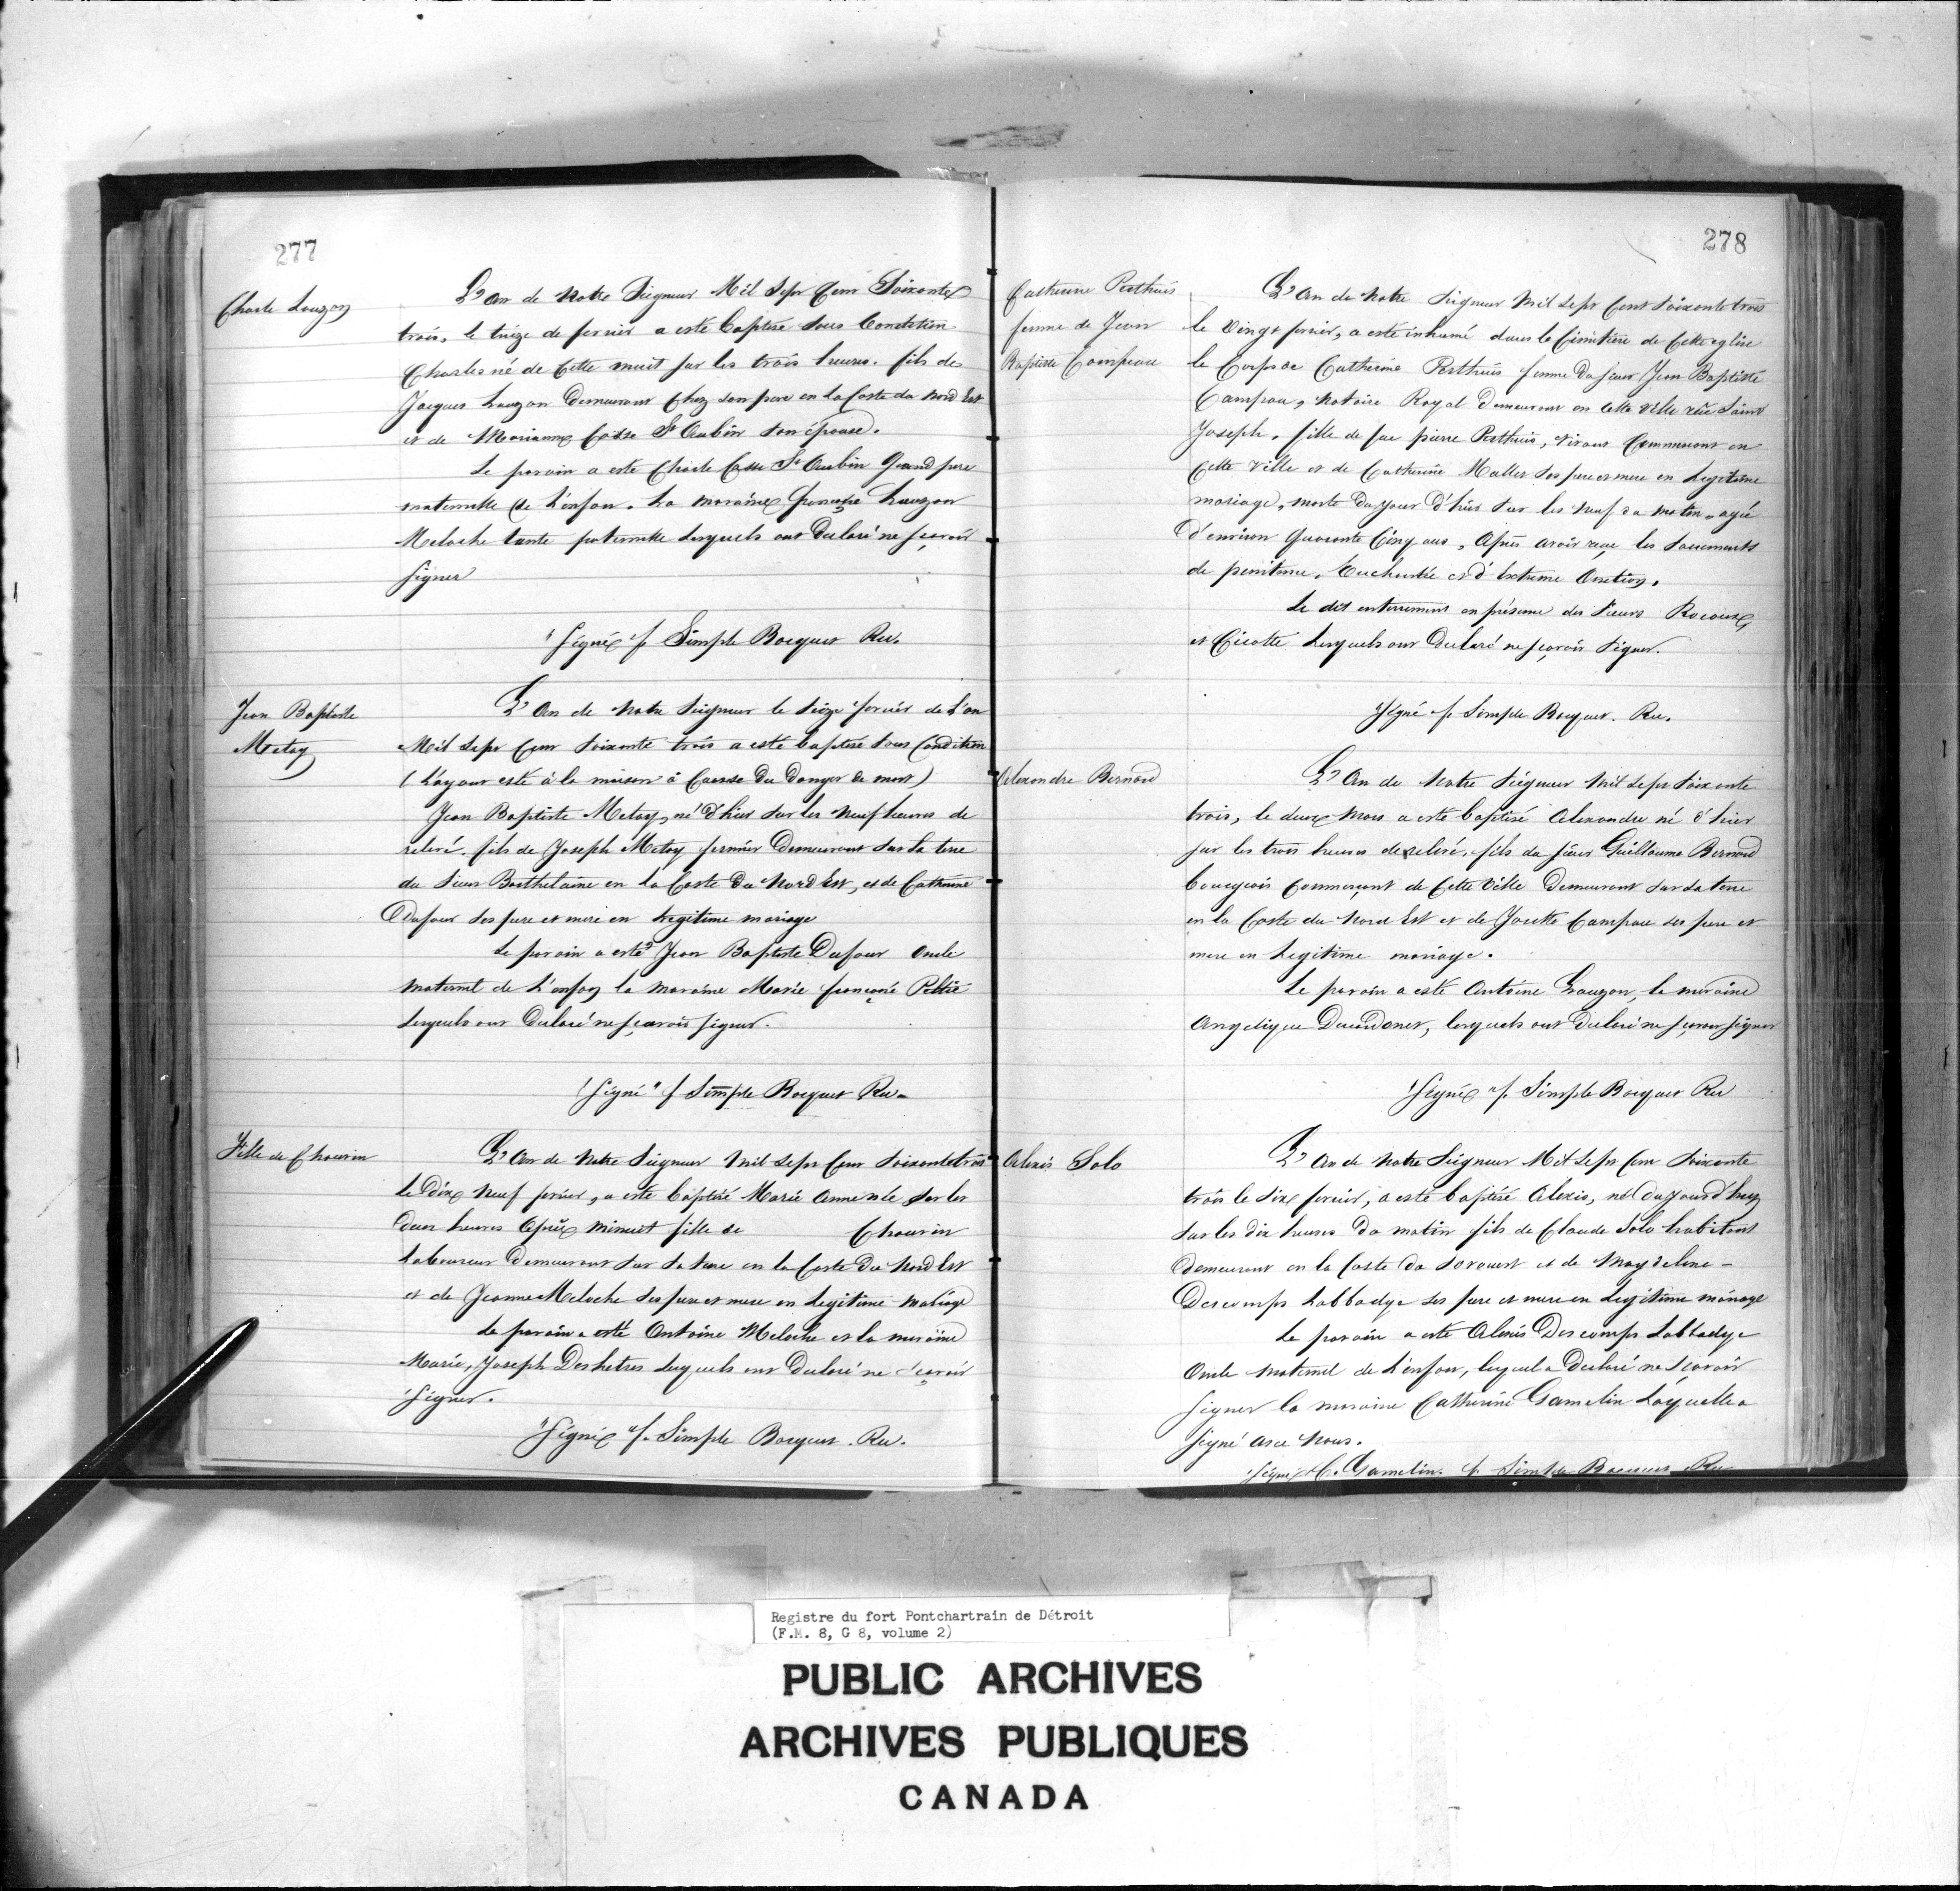 277
Charle Lauzon
L'An de Notre Seigneur Mil Sept Cent Soixante
trois, le treize de fevrier a esté baptisé sous Condition
Charles né de Cette nuit sur les trois heures. fils de
Jacques Lauzon Demeurant Chez son pere en la Coste du Nord Est
et de Marianne Casse St Aubin son épouse.
Le parain a esté Charle Casse St Aubin Grand pere
maternelle de L'enfan. La maraine Lauzon
Meloche tante paternelle Lesquels ont Declaré ne sçavoir
signer
"Signé" f. Simple Bocquet Rec.
Jean Baptiste
Metay
L'An de Notre Seigneur le Seize fevrier de L'an
Mil Sept Cent Soixante trois a esté baptisé sous Condition
(L'ayant esté à la maison à Causse du Danger de mort)
Jean Baptiste Metay, né d'hier sur les neuf heures de
relevé. fils de Joseph Metay fermier Demeurant sur la terre
du Sieur Barthelaine en la Coste du Nord Est, et de Catherine
Dufour ses pere et mere en Legitime mariage
Le parain a esté Jean Baptiste Dufour oncle
maternel de L'enfan la maraine Marie françoise Peltié
Lesquels ont Declaré ne sçavoir signer.
"Signé" f Simple Bocquet Rec.
Fille de Chauvin
L'An de Notre Seigneur Mil Sept Cent Soixante trois
le Dix Neuf fevrier, a esté baptisé Marie Anne née sur les
deux heures Après Minuit fille de Chauvin
Laboureur Demeurant sur sa terre en la Coste du Nord Est
et de Jeanne Meloche ses pere et mere en Legitime Mariage
Le parain a esté Antoine Meloche et la maraine
Marie, Joseph Deshetres Lesquels ont Declaré ne sçavoir
Signer.
"Signé" f. Simple Bocquet. Rec.
278
Catherine Perthuis
femme de Jean
Baptiste Campeau
L'An de Notre Seigneur Mil Sept Cent Soixante trois
le Vingt fevrier, a esté inhumé dans le Cimitiere de Cette eglise
le Corps de Catherine Perthuis femme du sieur Jean Baptiste
Campau, Notaire Royal Demeurant en Cette Ville rüe Saint
Joseph. fille de feu pierre Perthuis, vivant Commercant en
Cette Ville et de Catherine Mallet ses pere et mere en Legitime
mariage, morte du jour d'hier sur les neuf du matin, agée
d'environ Quarante Cinq ans, Après avoir reçue les Sacrements
de penitence, Eucharistie et d'Extreme Onction.
Le dit enterrement en présence des Sieurs
et Cicotte Lesquels ont Declaré ne sçavoir Signer.
"Signé" f. Simple Bocquet. Rec.
Alexandre Bernard
L'An de Notre Seigneur Mil Sept Soixante
trois, le deux Mars a esté baptisé Alexandre né d'hier
sur les trois heures de relevé, fils du sieur Guillaume Bernard
bourgeois Commerçant de Cette Ville Demeurant sur sa terre
en la Coste du Nord Est et de Josette Campau ses pere et
mere en Legitime mariage.
Le parain a esté Antoine Lauzon, la maraine
Angelique Ducendonet, lesquels ont Declaré ne sçavoir signer
"Signé" f. Simple Bocquet Rec
Alexis Solo
L'An de Notre Seigneur Mil Sept Cent Soixante
trois le Six fevrier, a esté baptisé Alexis, né du jourd'huy
sur les dix heures du matin fils de Claude Solo habitant
demeurant en la Coste du Sorouest et de Magdeline -
Descomps Labbadye ses pere et mere en Legitime mariage
Le parain a esté Alexis Descomps Labbadye
Oncle maternel de L'enfant, lequel a Declaré ne sçavoir
signer la maraine Catherine Gamelin Laquelle a
signé avec Nous.
"Signé" C. Gamelin. f. Simple Bocquet Rec
Registre du fort Pontchartrain de Détroit
(F.M. 8, G 8, volume 2)
PUBLIC ARCHIVES
ARCHIVES PUBLIQUES
CANADA